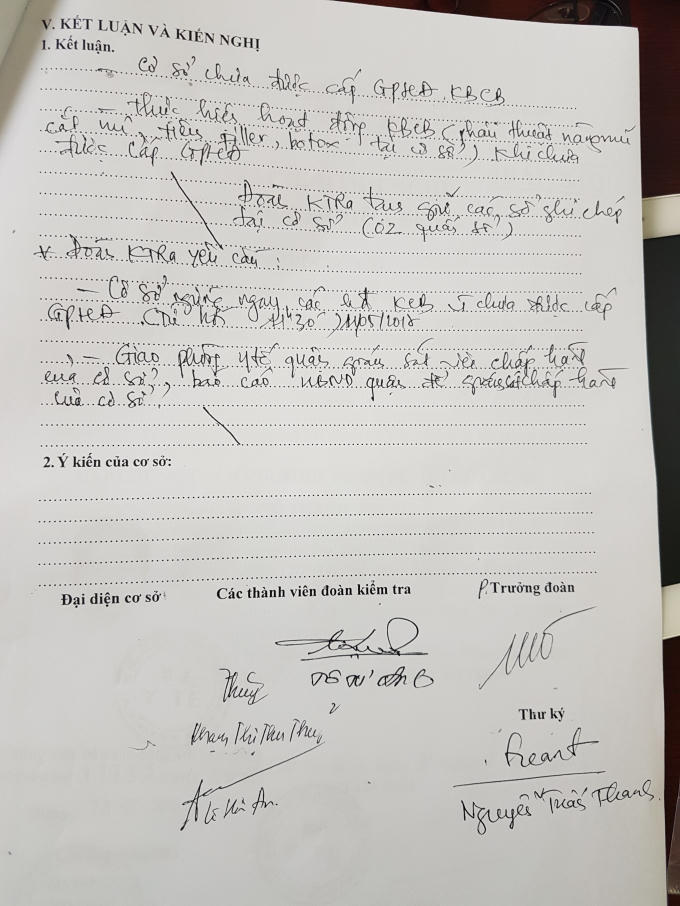 V. KẾT LUẬN VÀ KIẾN NGHỊ
1. Kết luận.
- Cơ sở chưa được cấp GPHĐ KBCB
- Thực hiện hoạt động KBCB (phẫu thuật nâng mũi
cắt mí, tiêm filler, botox tại cơ sở) khi chưa
được cấp GPHĐ
Đoàn KTRa tạm giữ các sổ ghi chép
tại cơ sở (02 quyển sổ)
* Đoàn KTRa yêu cầu:
- Cơ sở ngừng ngay các hđ KCB vì chưa được cấp
GPHĐ 11h30, 11/05/2018
- Giao phòng y tế quận giám sát việc chấp hành
của cơ sở, báo cáo UBND quận để giám sát chấp hành
của cơ sở.
2. Ý kiến của cơ sở:
Đại diện cơ sở
Các thành viên đoàn kiểm tra
P. Trưởng đoàn
Thuỷ
Phạm Thị Thu Thuỷ
Thư ký
Nguyễn Tuấn Thanh